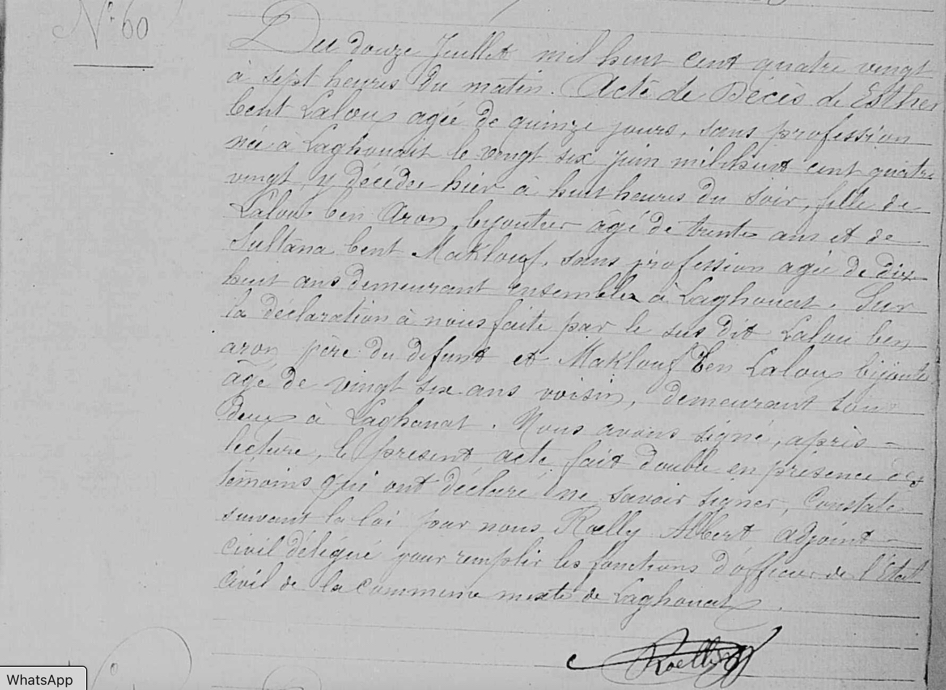 N° 60
Du douze Juillet mil huit cent quatre vingt
à sept heures du matin. Acte de Décès de Esther
bent Lalou agée de quinze jours, sans profession
née à Laghouat le vingt six juin mil huit cent quatre
vingt, y décédée hier à huit heures du soir, fille de
Lalou ben Aron, bijoutier âgé de trente ans et de
Sultana bent Maklouf, sans profession agée de dix
huit ans demeurant ensemble à Laghouat. Sur
la déclaration à nous faite par le sus dit Lalou ben
aron père du defunt et Maklouf ben Lalou bijoutier
agé de vingt six ans voisin, demeurant tous
deux à Laghouat. Nous avons signé, après
lecture, le present acte fait double en présence des
témoins qui ont déclaré ne savoir signer, Constaté
suivant la loi par nous Roelly Albert adjoint
civil délégué pour remplir les fonctions d'officier de l'Etat
civil de la commune mixte de Laghouat.
Roelly
WhatsApp